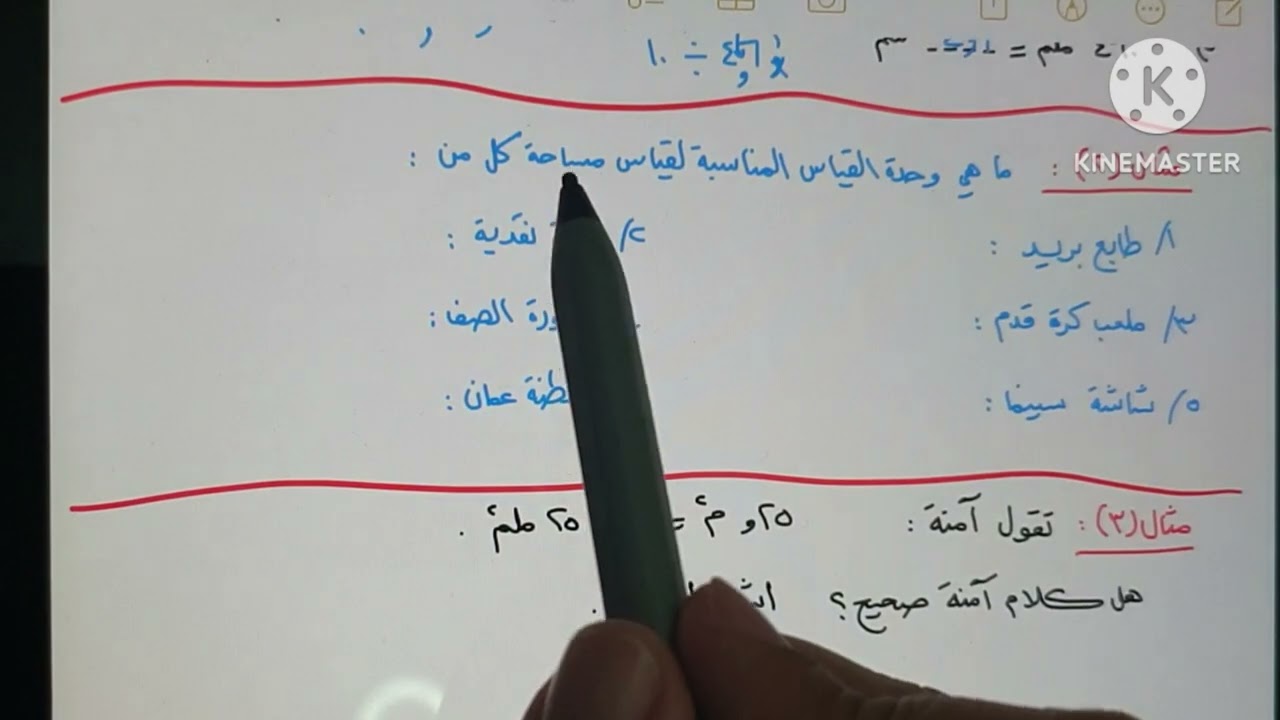 ملم = سم
١٠ ÷
KINEMASTER
مثال (٢): ما هي وحدة القياس المناسبة لقياس مساحة كل من :
١/ طابع بريد :
٢/ نقدية :
٣/ ملعب كرة قدم :
الصف :
٥/ شاشة سينما :
عمان :
مثال (٣): تقول آمنة : ٢٥و م² = ٢٥ ملم² .
هل كلام آمنة صحيح؟